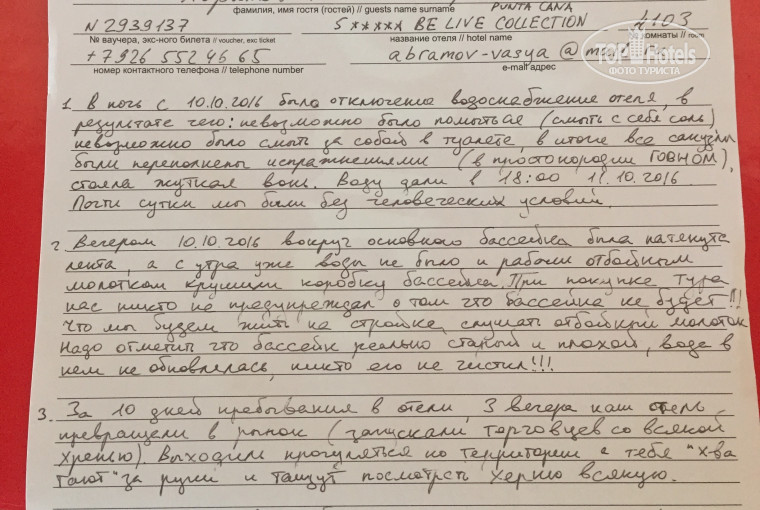 фамилия, имя гостя (гостей) // guests name surname PUNTA CANA
N 2939137 5 ***** BE LIVE COLLECTION 4103
№ ваучера, экс-ного билета // voucher, exc ticket название отеля // hotel name комнаты // room
+7926 552 46 65 abramov-vasya@
номер контактного телефона // telephone number e-mail адрес
TOP Hotels
ФОТО ТУРИСТА
1. В ночь с 10.10.2016 было отключение водоснабжения отеля, в
результате чего: невозможно было помыться (смыть с себя соль)
невозможно было смыть за собой в туалете, в итоге все санузлы
были переполнены испражнениями (в простонародии ГОВНОМ),
стояла жуткая вонь. Воду дали в 18:00 11.10.2016
Почти сутки мы были без человеческих условий.
2 Вечером 10.10.2016 вокруг основного бассейна была натянута
лента, а с утра уже воды не было и рабочии отбойным
молотком крушили коробку бассейна. При покупке тура
нас никто не предупреждал о том что бассейна не будет!!!
Что мы будем жить на стройке, слушать отбойный молоток
Надо отметить что бассейн реально старый и плохой, вода в
нем не обновлялась, никто его не чистил!!!
3. За 10 дней пребывания в отели, 3 вечера наш отель
превращели в рынок (запускали торговцев со всякой
хренью). Выходили прогуляться по территории а тебя "хва
тают" за руки и тащут посмотреть херню всякую.